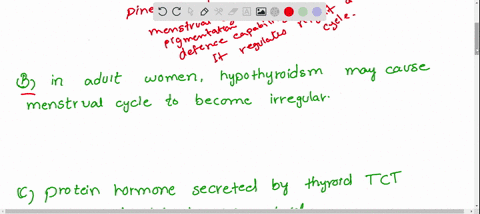 pine
menstrual
pigmentation
defence capabili
It regulates
cycle.
(B) in adult women, hypothyroidsm may cause
menstrual cycle to become irregular.
(C) protein hormone secreted by thyroid TCT